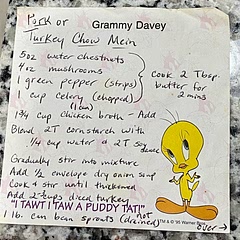 Pork or
Grammy Davey
Turkey Chow Mein
5oz water chestnuts
4oz mushrooms
1 green pepper (strips)
1 cup celery (chopped)
(1 can)
cook 2 Tbsp.
butter for
2 mins
1 3/4 cup chicken broth - Add
Blend 2T cornstarch with
1/4 cup water & 2T soy
sauce
Gradually stir into mixture
Add 1/2 envelope dry onion soup
Cook & stir until thickened
Add 2-3 cups diced turkey
"I TAWT I TAW A PUDDY TAT!"
TM & © '95 Warner
1 lb. can bean sprouts (drained)
not
over →